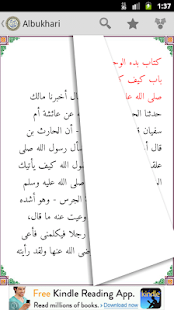 1:37
Albukhari
كتاب بدء الوحـ
باب كيف كـ
صلى الله عليـ
حدثنا الحـ
سفيان
علقـ
أخبرنا مالك
عن عائشة أم
أن الحارث بن
أل رسول الله صلى
ول الله كيف يأتيك
الله عليه وسلم
الجرس - وهو أشده
وعيت عنه ما قال،
رجلا فيكلمني فأعي
ضى الله عنها ولقد رأيته
Free Kindle Reading App.
Read millions of books. Download now
kindle